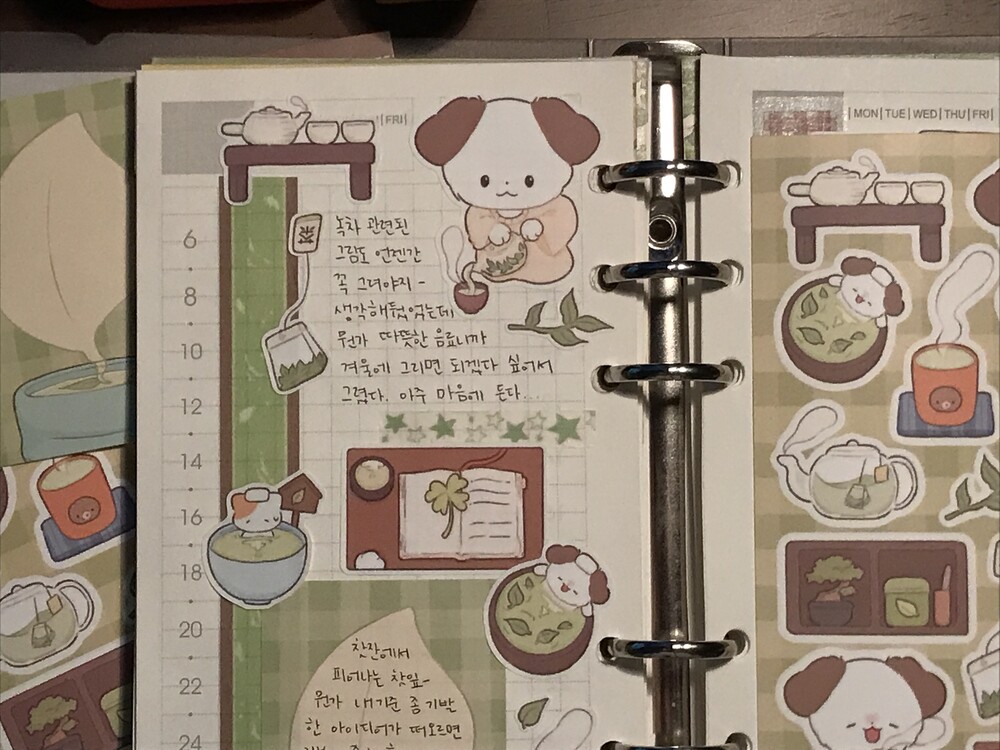 |FRI|
6
8
10
12
14
16
18
20
22
24
茶
녹차 관련된
그림도 언젠간
꼭 그려야지 -
생각해뒀었는데
뭔가 따뜻한 음료니까
겨울에 그리면 되겠다 싶어서
그렸다. 아주 마음에 든다...
찻잔에서
피어나는 찻잎~
뭔가 내 기준 좀 기발
한 아이디어가 떠오르면
|MON|TUE|WED|THU|FRI|